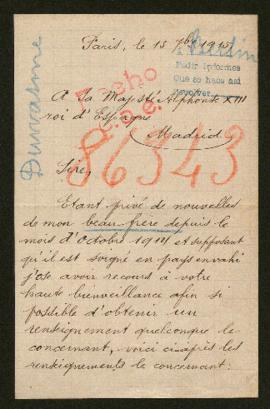 Paris, le 15 7bre 1915
Berlin
Pedir informes
Que se haga asi
devolver.
A Sa Majesté Alphonse XIII
roi d'Espagne
Madrid
86343
Sire,
Etant privé de nouvelles
de mon beau-frère depuis le
mois d'Octobre 1914 et supposant
qu'il est soigné en pays envahi
j'ose avoir recours à votre
haute bienveillance afin si
possible d'obtenir un
renseignement quelconque le
concernant, voici ci-après les
renseignements le concernant: